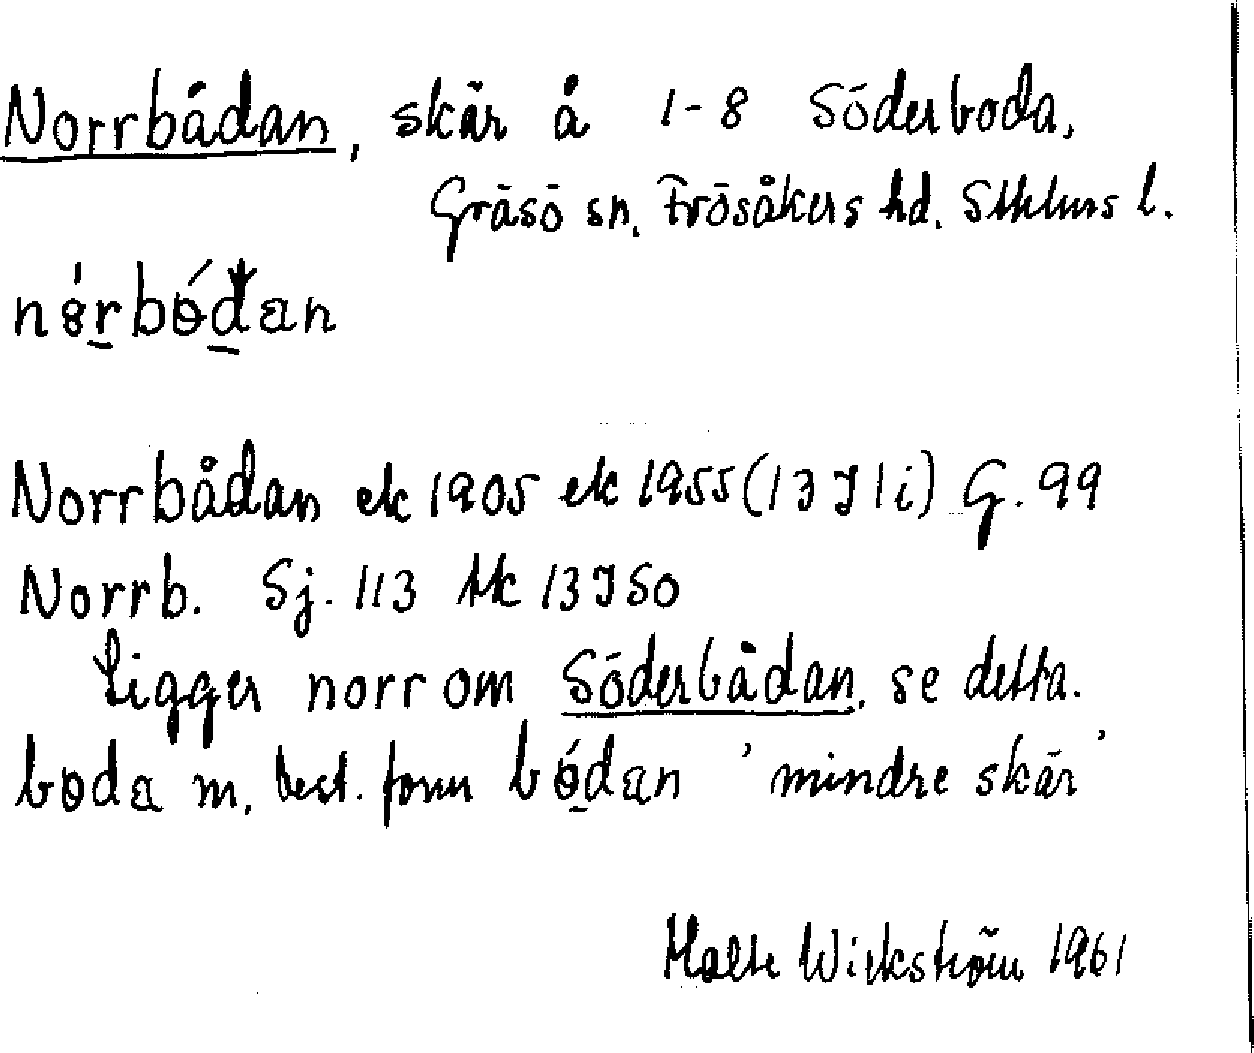 Norrbådan, skär å 1-8 Söderboda,
Gräsö sn, Frösåkers hd. Sthlms l.
Norrbådan ek 1905 ek 1955 (13 J 1 i) G. 99
Norrb. Sj. 113 tk 13 J SO
Ligger norr om Söderbådan, se detta.
boda m, best. form bódan 'mindre skär'
Malte Wickström 1961